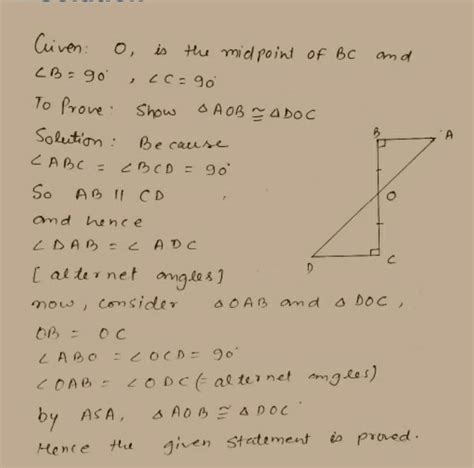 Given: O, is the midpoint of BC and
∠B = 90° , ∠C = 90°
To Prove: Show △AOB ≅ △DOC
Solution: Because
∠ABC = ∠BCD = 90°
So AB || CD
and hence
∠DAB = ∠ADC
[alternet angles]
now, consider △OAB and △DOC,
OB = OC
∠ABO = ∠OCD = 90°
∠OAB = ∠ODC (= alternet angles)
by ASA, △AOB ≅ △DOC
Hence the given statement is proved.
B
A
O
D
C